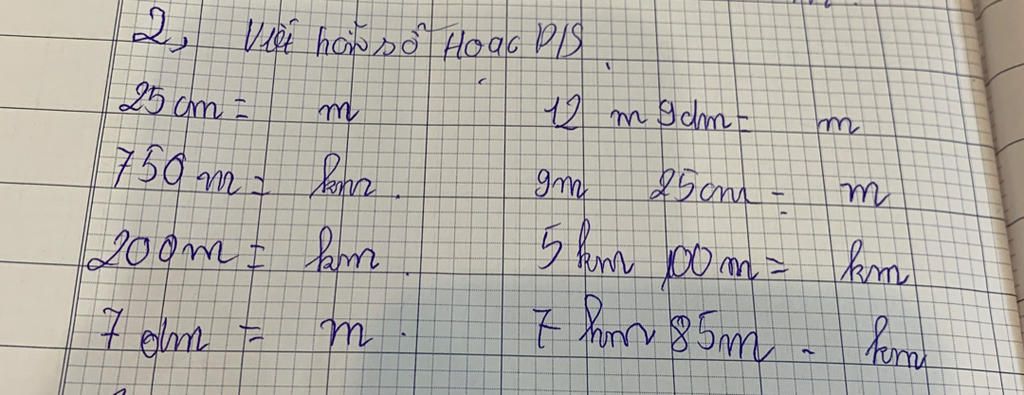 2, Viết hỗn số Hoặc PTS.
25 cm = m 12 m 9dm = m
750 m = km. 9m 25cm = m
200m = km. 5 km 100 m = km
7 dm = m. 7 km 85m - km